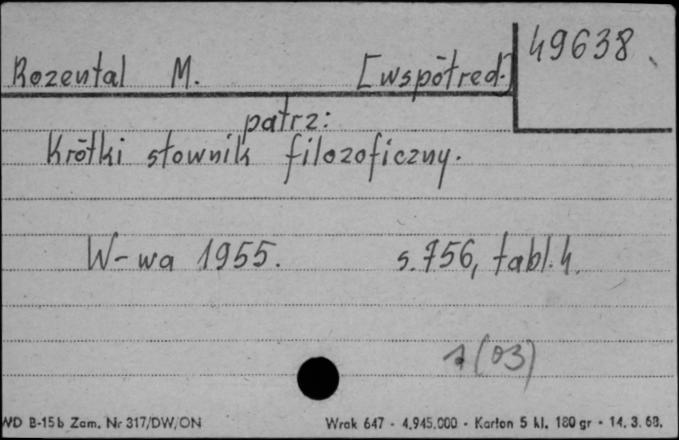 49638
Rozental M. [współred.]
patrz:
Krótki słownik filozoficzny.
W-wa 1955. s. 756, tabl. 4.
1(03)
WD B-15b Zam. Nr 317/DW/ON Wrak 647 - 4.945.000 - Karton 5 kl. 180 gr - 14.3.68.